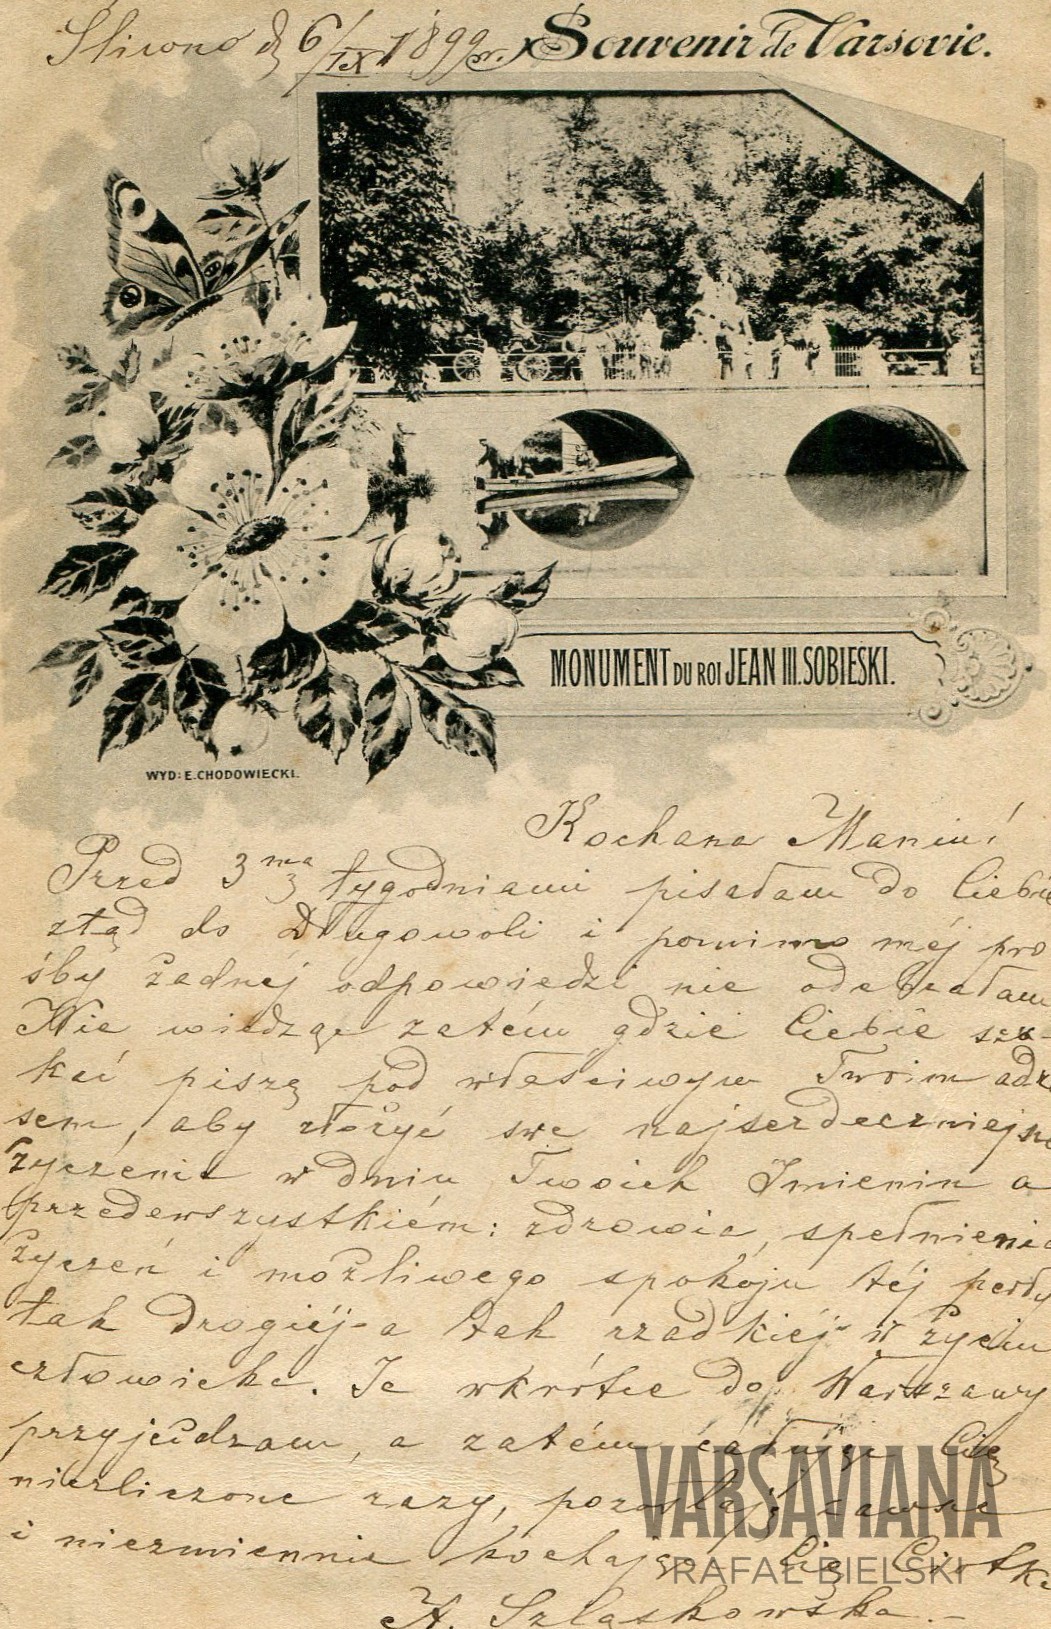 Śliwno d 6/IX 1899 r.
Souvenir de Varsovie.
MONUMENT DU ROI JEAN III. SOBIESKI.
WYD: E. CHODOWIECKI.
Kochana Maniu!
Przed 3ma tygodniami pisałam do Ciebie
ztąd do Długowoli i pomimo méj pro
śby żadnéj odpowiedzi nie odebrałam
Nie wiedząc zatém gdzie Ciebie szu-
kać piszę pod właściwym Twoim adre
sem, aby złożyć swe najserdeczniejsze
życzenia w dniu Twoich Imienin a
przedewszystkiém: zdrowia, spełnienia
życzeń i możliwego spokoju téj perły
tak drogiéj a tak rzadkiéj w życiu
człowieka. Ja wkrótce do Warszawy
przyjeżdzam, a zatém całuję Cię
niezliczone razy, pozostaję zawsze
i niezmiennie kochająca Cię Ciotka
A. Szląskowska.-
VARSAVIANA
RAFAŁ BIELSKI